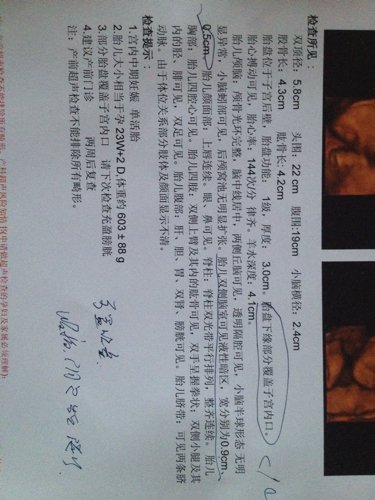 检查所见：
双顶径：5.8cm 头围：22 cm 腹围:19cm 小脑横径：2.4cm
股骨长：4.3cm 肱骨长:4.2cm
胎盘位于子宫右壁，胎盘功能： 1级，厚度： 3.0cm。胎盘下缘部分覆盖子宫内口。
胎心搏动可见，胎心率：144次/分 律齐。羊水深度：4.1cm。
胎儿颅脑：颅骨光环完整，脑中线居中，两侧丘脑可见，透明隔腔可见，小脑半球形态 无明
显异常，小脑蚓部可见，后颅窝池无明显扩张。胎儿双侧脑室可见液性暗区，宽分别为0.9cm、
0.5cm。胎儿颜面部：上唇连续。眼、鼻可见。脊柱：脊柱双光带平行排列，整齐连续。胎儿
胸部：胎儿四腔心可见。胎儿四肢：双侧上臂及其内的肱骨可见，双手呈握拳状；双侧小腿及其
内的胫、腓可见，双足可见。胎儿腹部：肝、胆、胃、双肾、膀胱可见。胎儿脐带：可见两条脐
动脉。由于体位关系部分肢体及颜面显示不清。
检查提示：
1.宫内中期妊娠 单活胎
2.胎儿大小相当于孕 23W+2 D,体重约 603 ± 88 g
3.部分胎盘覆盖子宫内口 请下次检查充盈膀胱
4.建议产前门诊 两周后复查
注： 产前超声检查不能排除所有畸形。